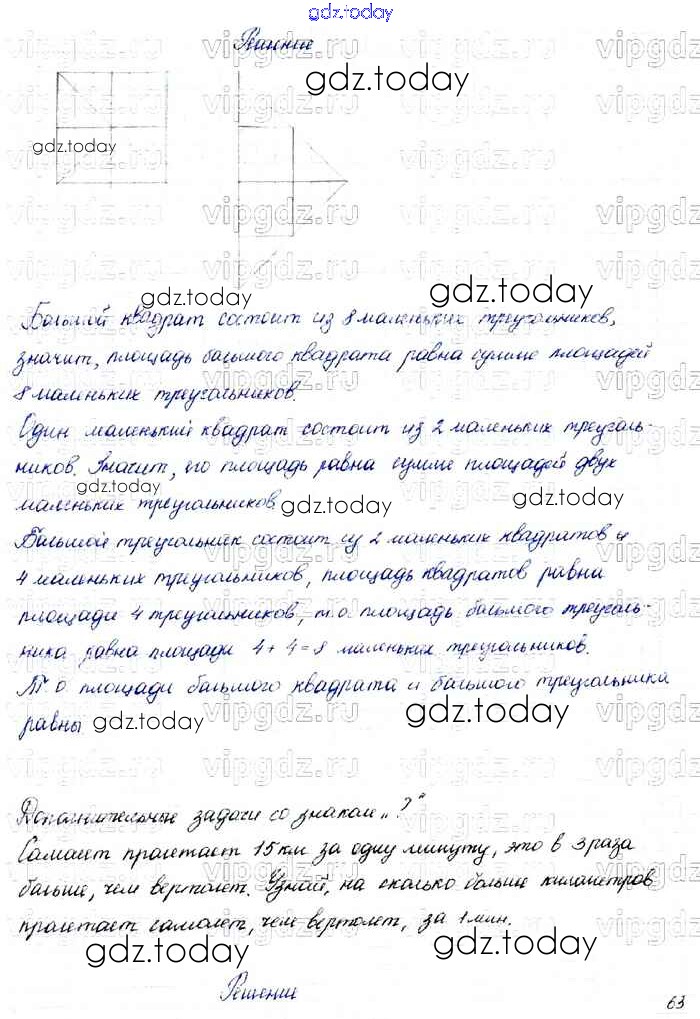 gdz.today
Решение
gdz.today
gdz.today
gdz.today
gdz.today
Большой квадрат состоит из 8 маленьких треугольников,
значит, площадь большого квадрата равна сумме площадей
8 маленьких треугольников.
Один маленький квадрат состоит из 2 маленьких треуголь-
ников. Значит, его площадь равна сумме площадей двух
gdz.today
маленьких треугольников.
gdz.today
gdz.today
Большой треугольник состоит из 2 маленьких квадратов и
4 маленьких треугольников, площадь квадратов равна
площади 4 треугольников, т.о. площадь большого треуголь-
ника равна площади 4 + 4 = 8 маленьких треугольников.
Т.о. площади большого квадрата и большого треугольника
равны
gdz.today
gdz.today
Дополнительные задачи со знаком „?"
Самолет пролетает 15 км за одну минуту, это в 3 раза
больше, чем вертолет. Узнай, на сколько больше километров
пролетает самолет, чем вертолет, за 1 мин.
gdz.today
gdz.today
Решение
63